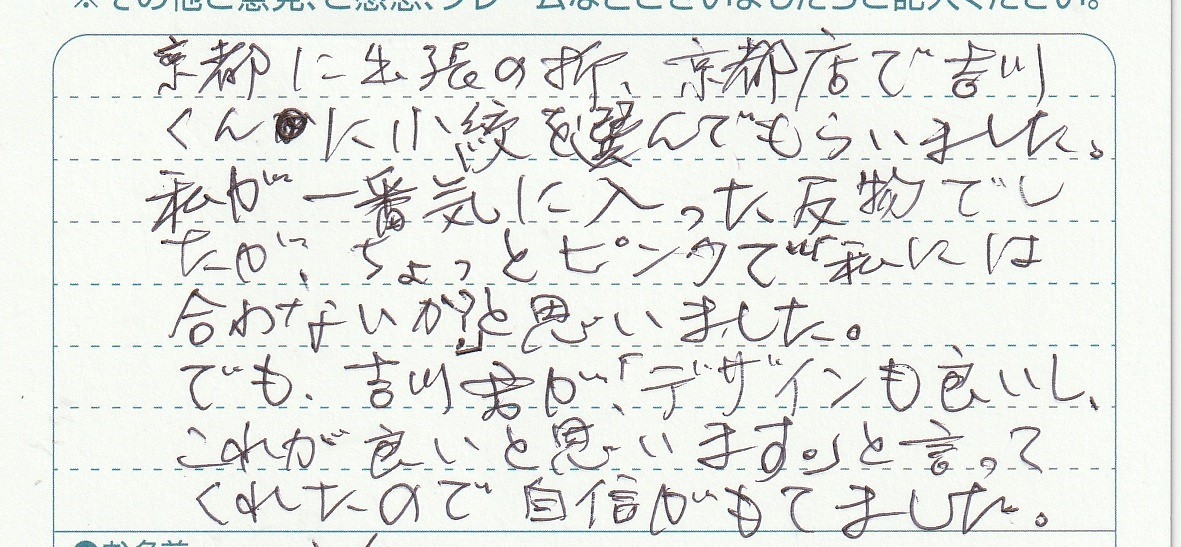 ※その他ご意見、ご感想、クレームなどございましたらご記入ください。
京都に出張の折、京都店で吉川
くんに小紋を選んでもらいました。
私が一番気に入った反物でし
たが、ちょっとピンクで「私には
合わないか?」と思いました。
でも、吉川君が、「デザインも良いし、
これが良いと思います。」と言って
くれたので自信がもてました。
●お名前